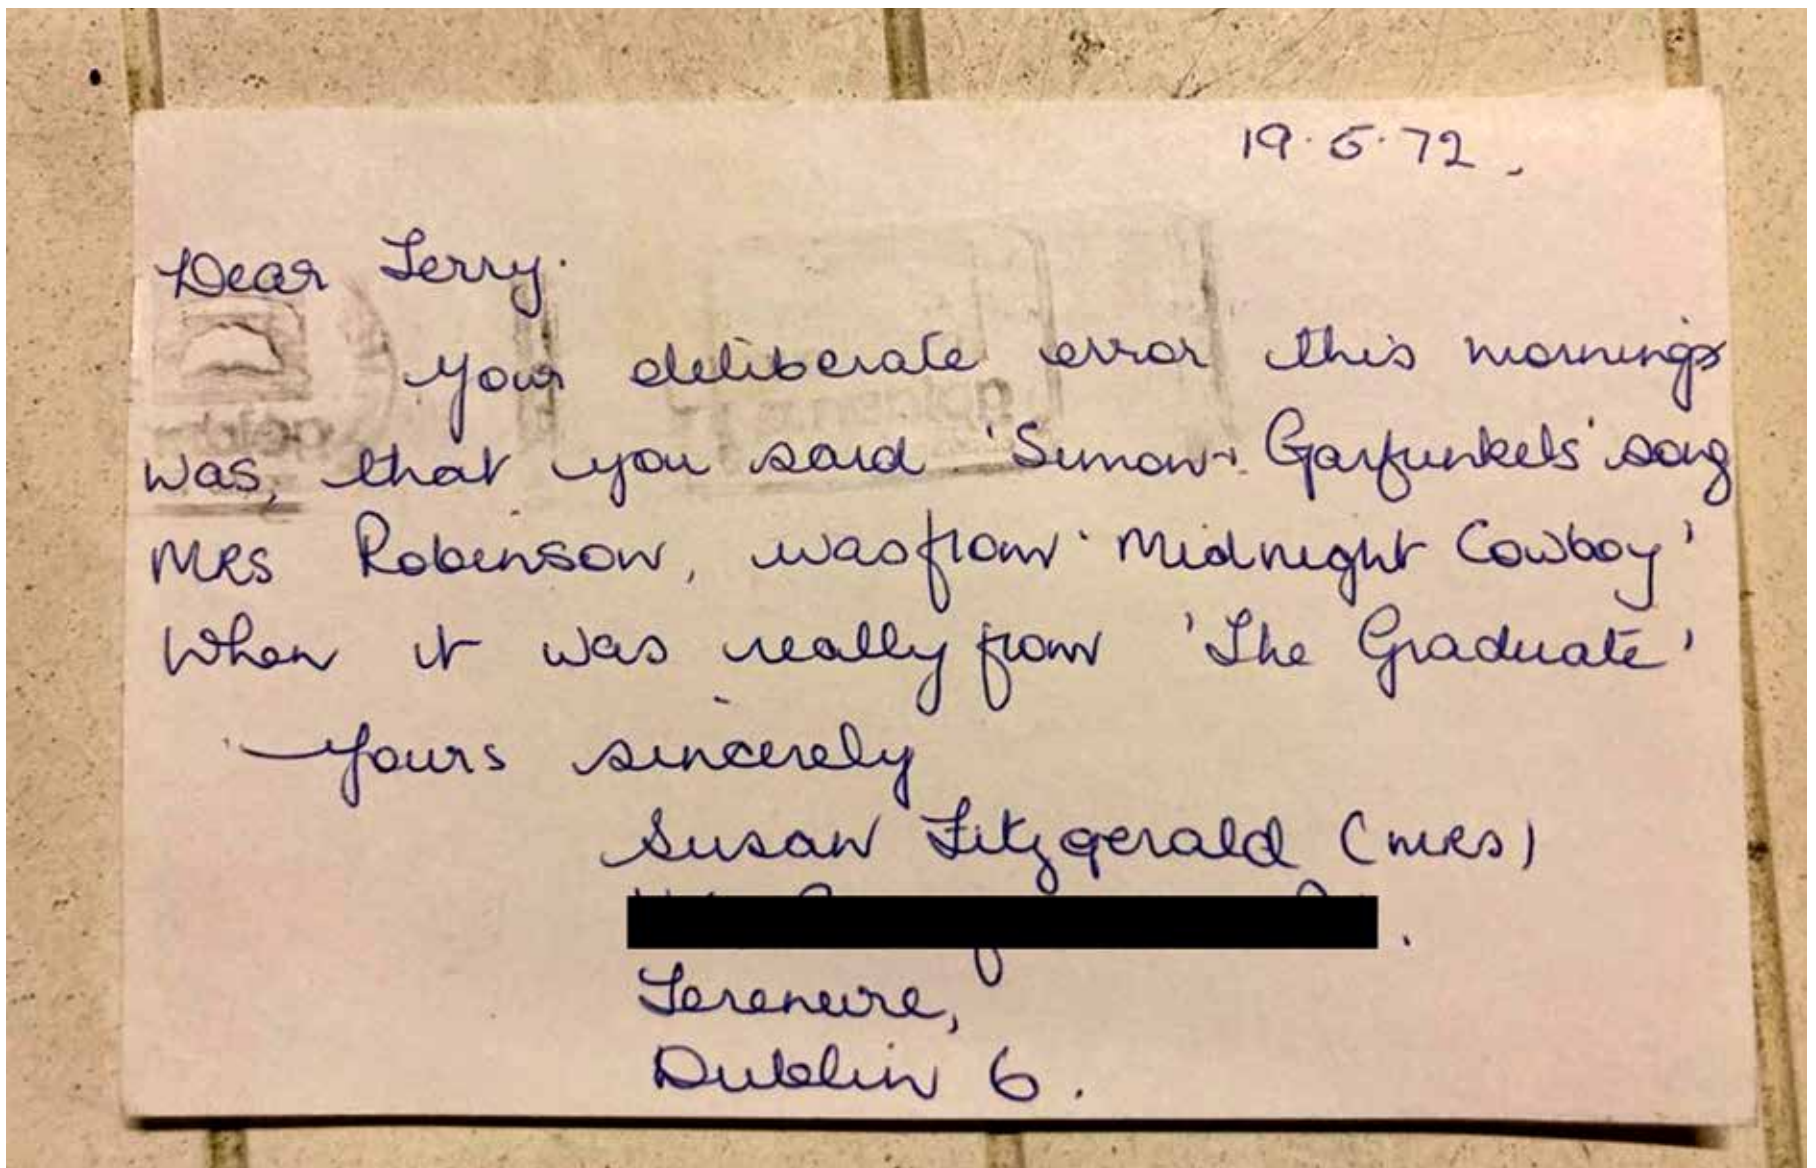 19.5.72,
Dear Terry.
Your deliberate error this mornings
was, that you said 'Simon + Garfunkels' song
MRS Robinson, was from 'Midnight Cowboy'
When it was really from 'The Graduate'
Yours sincerely
Susan Fitzgerald (MRS)
Terenure,
Dublin 6.